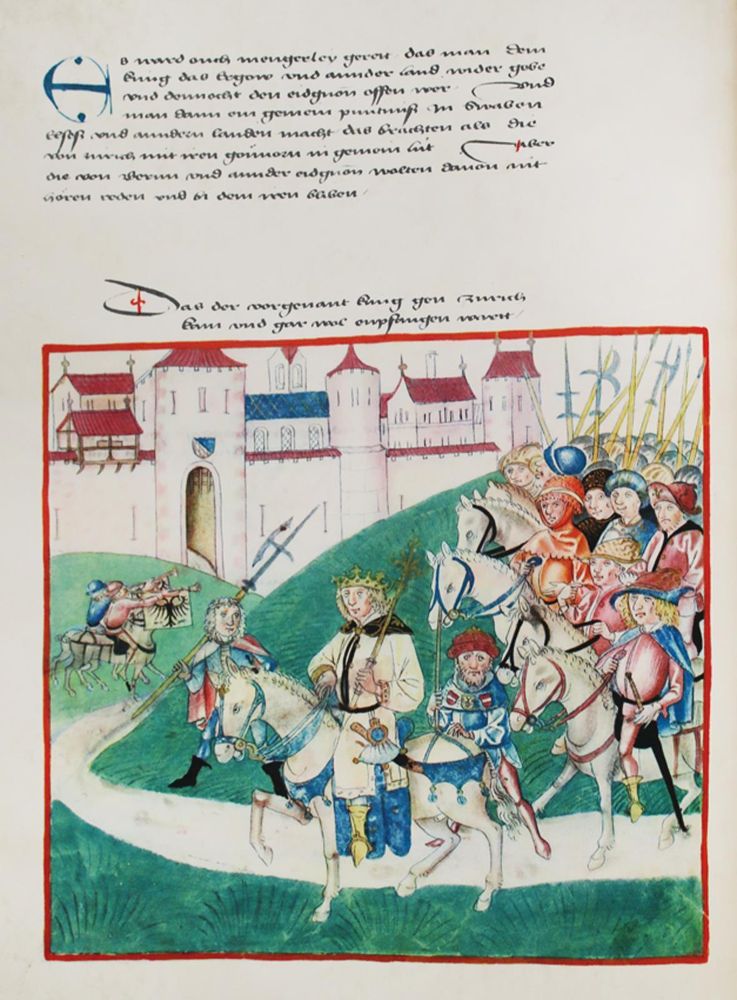 Es ward ouch mengerley gerett das man dem
küng das Ergow vnd annder land wider gebe
vnd dennocht den eidgnon offen wer Vnd
man dann ein gemein püntniß In Swaben
Elseß vnd anndern landen macht das brachten als die
von zurich mit iren gönnorn in gemein lüt Aber
die von Bernn vnd annder eidgnon wolten dauon nit
hören reden vnd bi dem iren bliben
Das der vorgenant küng gen zurich
kam vnd gar wol enpfangen wartt